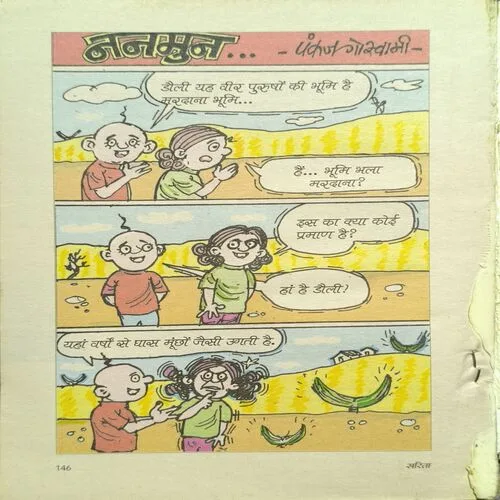 ननमुन... - पंकज गोस्वामी -
डौली यह वीर पुरुषों की भूमि है
मरदाना भूमि...
हैं... भूमि भला
मरदाना?
इस का क्या कोई
प्रमाण है?
हां है डौली!
यहां वर्षों से घास मूंछों जैसी उगती है.
146
सरिता